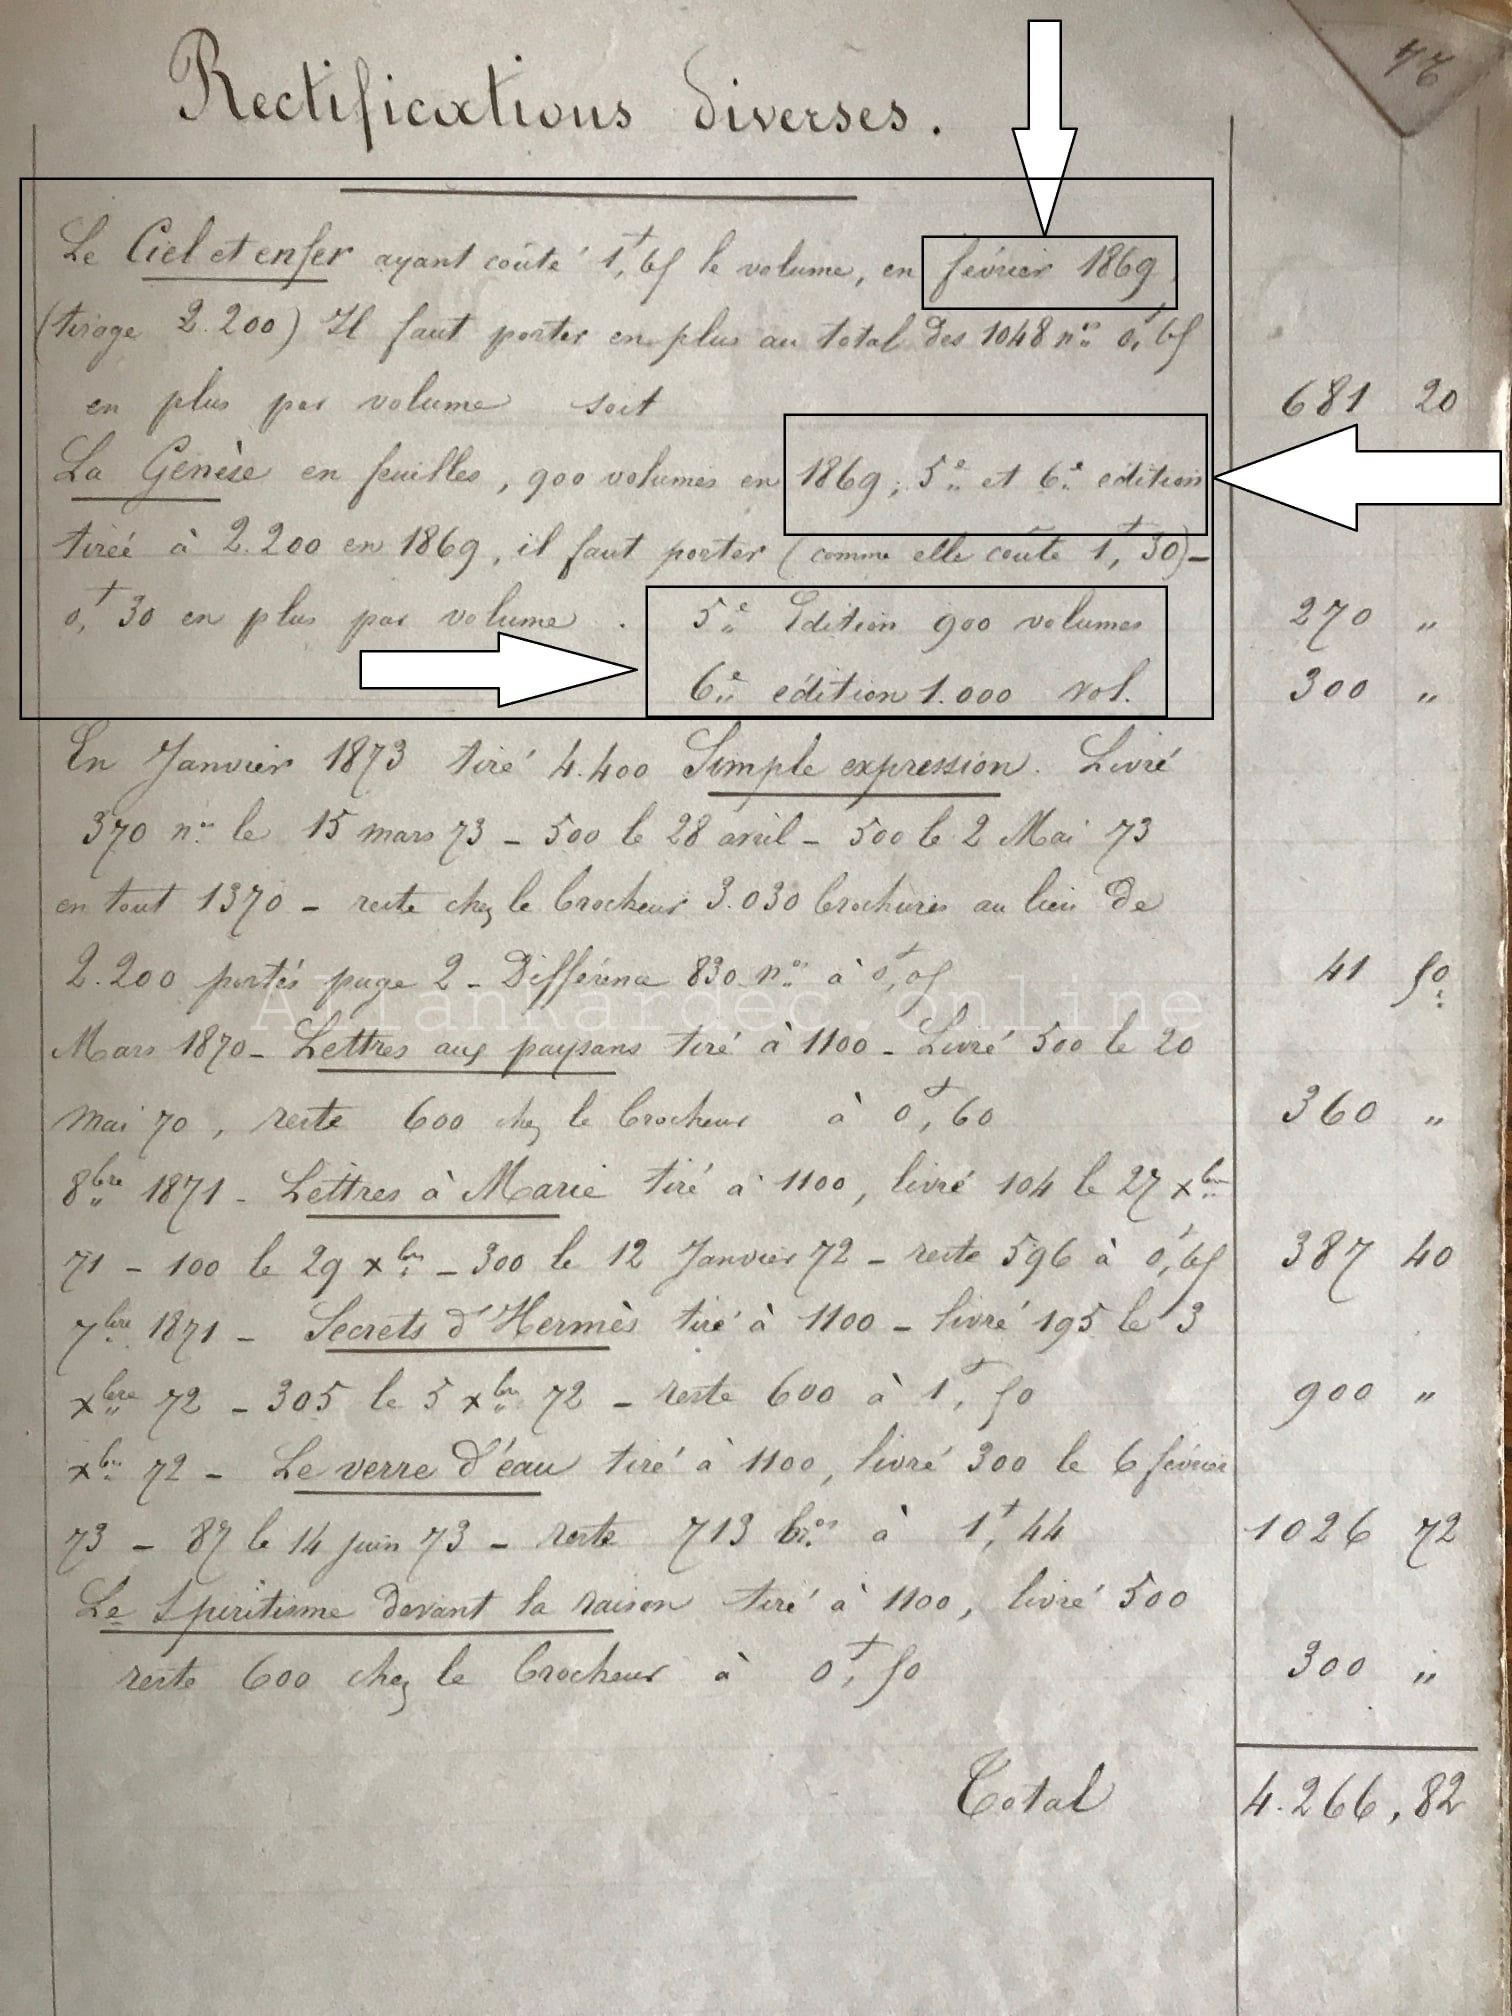 76
Rectifications diverses.
Le Ciel et enfer ayant coûté 1f,65 le volume, en février 1869,
(tirage 2.200) Il faut porter en plus au total des 1048 nos 0f,65
en plus par volume soit 681 20
La Genèse en feuilles, 900 volumes en 1869, 5e et 6e édition
tireé à 2.200 en 1869, il faut porter (comme elle coûte 1f,30)-
0f,30 en plus par volume. 5e Edition 900 volumes 270 "
6e édition 1.000 vol. 300 "
En Janvier 1873 tiré 4.400 Simple expression. Livré
370 nos le 15 mars 73 - 500 le 28 avril - 500 le 2 Mai 73
en tout 1370 - reste chez le brocheur 3.030 brochures au lieu de
2.200 portés page 2 - Différence 830 nos à 0f,05 41 50
Allankardec.online
Mars 1870 - Lettres aux paysans tiré à 1100 - Livré 500 le 20
mai 70, reste 600 chez le brocheur à 0f,60 360 "
8bre 1871 - Lettres à Marie tiré à 1100, livré 104 le 27 xbre
71 - 100 le 29 xbre - 300 le 12 Janvier 72 - reste 596 à 0f,65 387 40
7bre 1871 - Secrets d'Hermès tiré à 1100 - livré 195 le 3
xbre 72 - 305 le 5 xbre 72 - reste 600 à 1f,50 900 "
xbre 72 - Le verre d'éau tiré à 1100, livré 300 le 6 février
73 - 87 le 14 juin 73 - reste 713 bres à 1f,44 1026 72
Le Spiritisme devant la raison tiré à 1100, livré 500
reste 600 chez le brocheur à 0f,50 300 "
Total 4.266,82